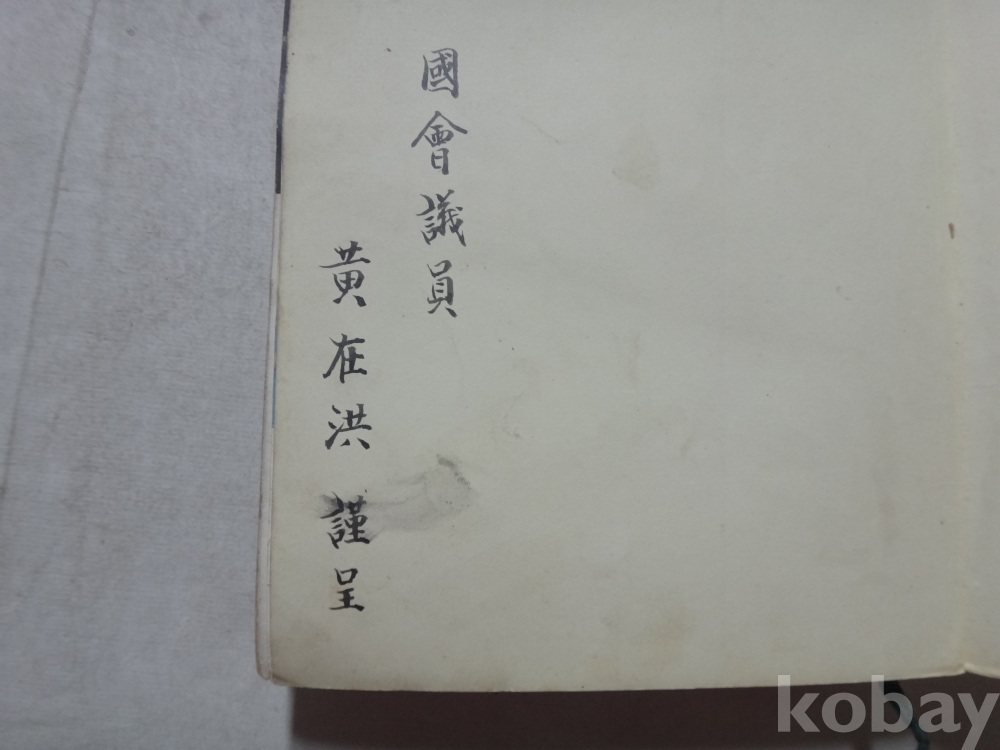 國會議員
黃在洪 謹呈
kobay